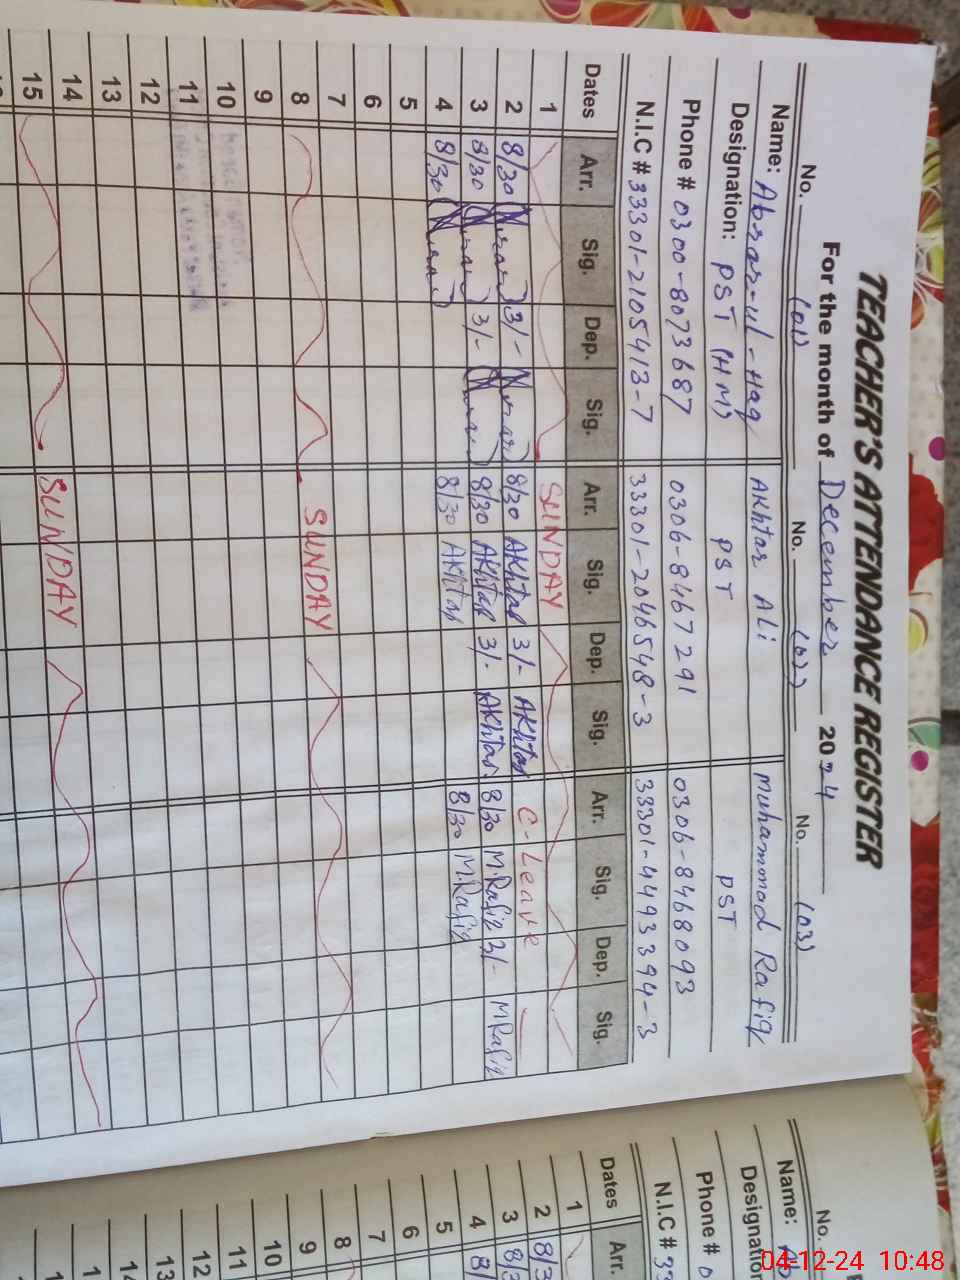 TEACHER'S ATTENDANCE REGISTER
For the month of December 2024
No. (01) No. (02) No. (03)
Name: Absar-ul-Haq Akhtar Ali Muhammad Rafiq
Designation: PST (HM) PST PST
Phone # 0300-8073687 0306-8467291 0306-8468093
N.I.C # 33301-2105413-7 33301-2046548-3 33301-4493394-3
Dates Arr. Sig. Dep. Sig. Arr. Sig. Dep. Sig. Arr. Sig. Dep. Sig.
1 SUNDAY
2 8/30 3/- 8/30 Akhtar 3/- Akhtar C-Leave
3 8/30 3/- 8/30 Akhtar 3/- Akhtar 8/30 M.Rafiq 3/- M Rafiq
4 8/30 8/30 Akhtar 8/30 M.Rafiq
5
6
7
8 SUNDAY
9
10
11
12
13
14
15 SUNDAY
No.
Name: Ab
Designation
Phone # 0
N.I.C # 33
Dates Arr.
1
2 8/3
3 8/3
4 8/
5
6
7
8
9
10
11
12
13
04-12-24 10:48